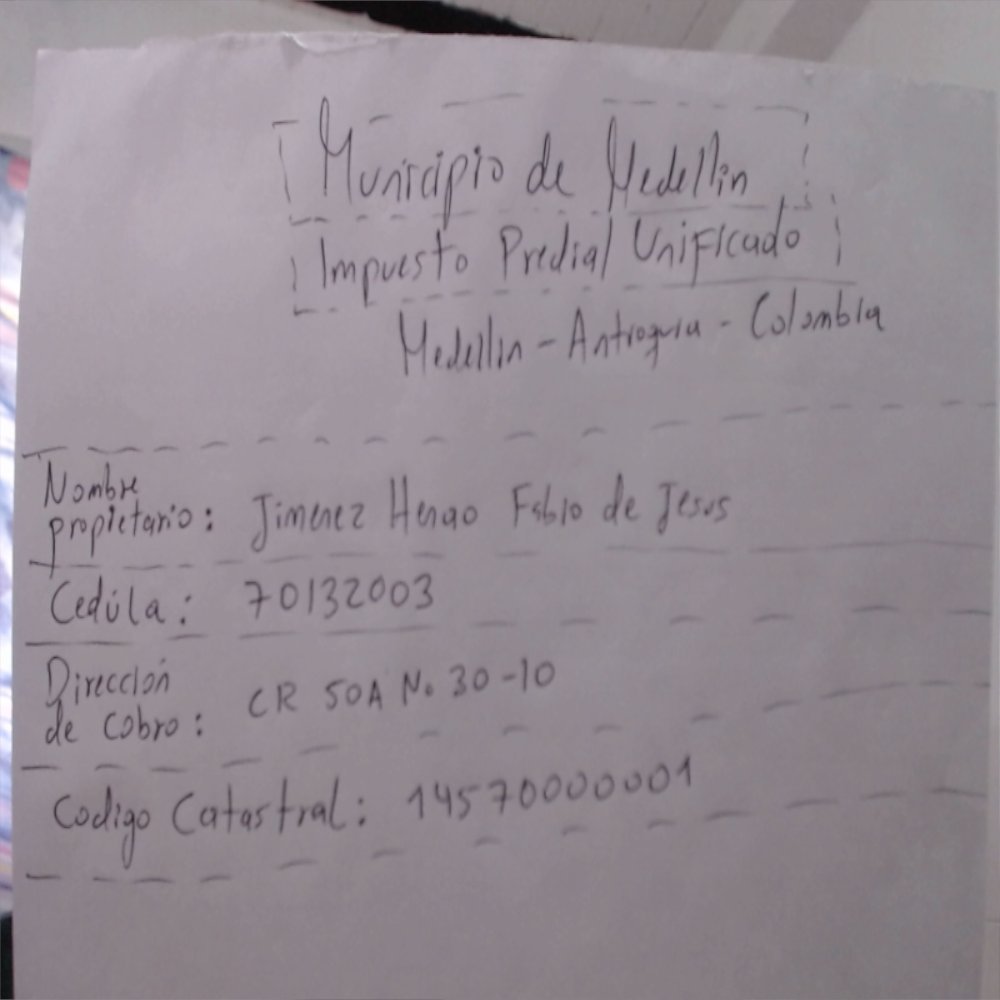 Municipio de Medellin
Impuesto Predial Unificado
Medellin - Antioquia - Colombia
Nombre
propietario: Jimenez Henao Fabio de Jesus
Cedúla: 70132003
Dirección
de cobro: CR 50A No 30-10
Codigo Catastral: 14570000001